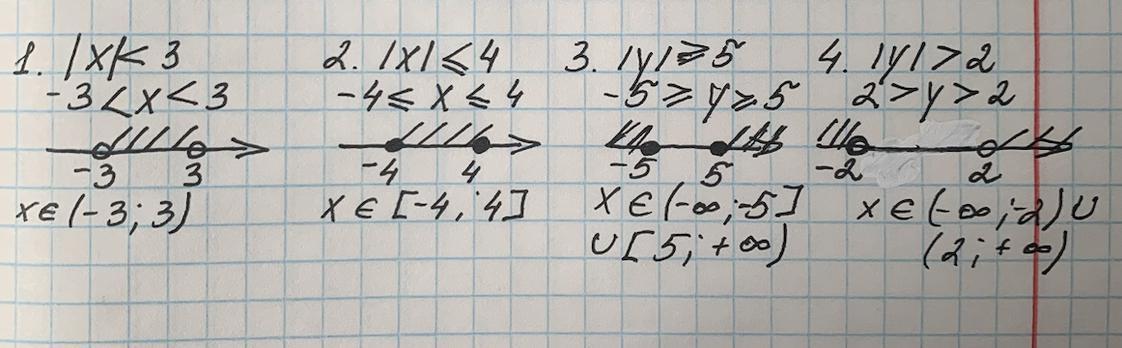 1. |x|< 3
-3 < x < 3
-3 3
x ∈ (-3; 3)
2. |x| ⩽ 4
-4 ⩽ x ⩽ 4
-4 4
x ∈ [-4; 4]
3. |y| ⩾ 5
-5 ⩾ y ⩾ 5
-5 5
x ∈ (-∞; -5]
∪ [5; +∞)
4. |y| > 2
2 > y > 2
-2 2
x ∈ (-∞; -2) ∪
(2; +∞)